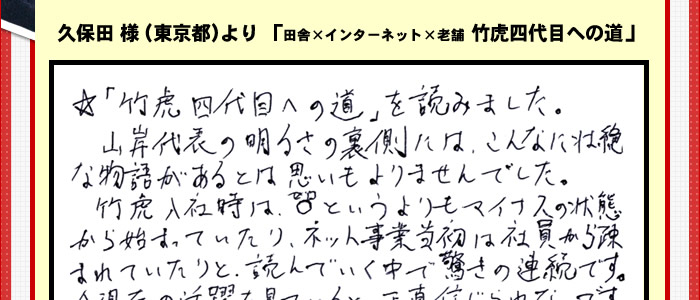 久保田 様（東京都）より 「田舎×インターネット×老舗 竹虎四代目への道」
☆「竹虎 四代目への道」を読みました。
山岸代表の明るさの裏側には、こんなに壮絶
な物語があるとは思いもよりませんでした。
竹虎入社時は、0というよりもマイナスの状態
から始まっていたり、ネット事業当初は社員から疎
まれていたりと、読んでいく中で驚きの連続です。